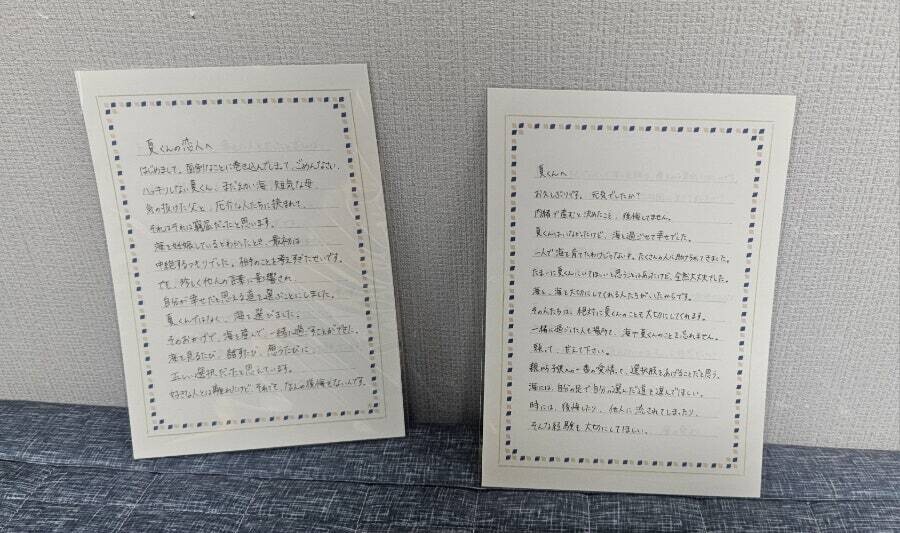 夏くんの恋人へ
はじめまして。面倒なことに巻き込んでしまって、ごめんなさい。
ハッキリしない夏くん、まだ小さい海、短気な母、
気の抜けた父と、厄介な人たちに挟まれて、
それはそれは窮屈だったと思います。
海を妊娠しているとわかったとき、最初は
中絶するつもりでした。相手のことを考えすぎたせいです。
でも、珍しく他人の言葉に影響され、
自分が幸せだと思える道を選ぶことにしました。
夏くんではなく、海を選びました。
そのおかげで、海を産んで、一緒に過ごすことができた。
海を見るたび、話すたび、思うたびに、
正しい選択だったと思えています。
好きな人とは離れたけど、それでも、なんの後悔もないんです。
夏くんへ
お久しぶりです。元気でしたか?
内緒で産むと決めたこと、後悔してません。
夏くんはいなかったけど、海と過ごせて幸せでした。
一人で海を育てたわけじゃないよ。たくさんの人に助けられてきました。
たまに夏くんいてほしいと思うときはあったけど、全然大丈夫でした。
海と、海を大切にしてくれる人たちがいたからです。
その人たちは、絶対に夏くんのことも大切にしてくれます。
一緒に過ごした人も場所も、海も夏くんのことも忘れません。
頼って、甘えて下さい。
親から子供への一番の愛情って、選択肢をあげることだと思う。
海には、自分の足で自分の選んだ道を選んでほしい。
時には、後悔したり、他人に流されてしまったり、
そんな経験も大切にしてほしい。